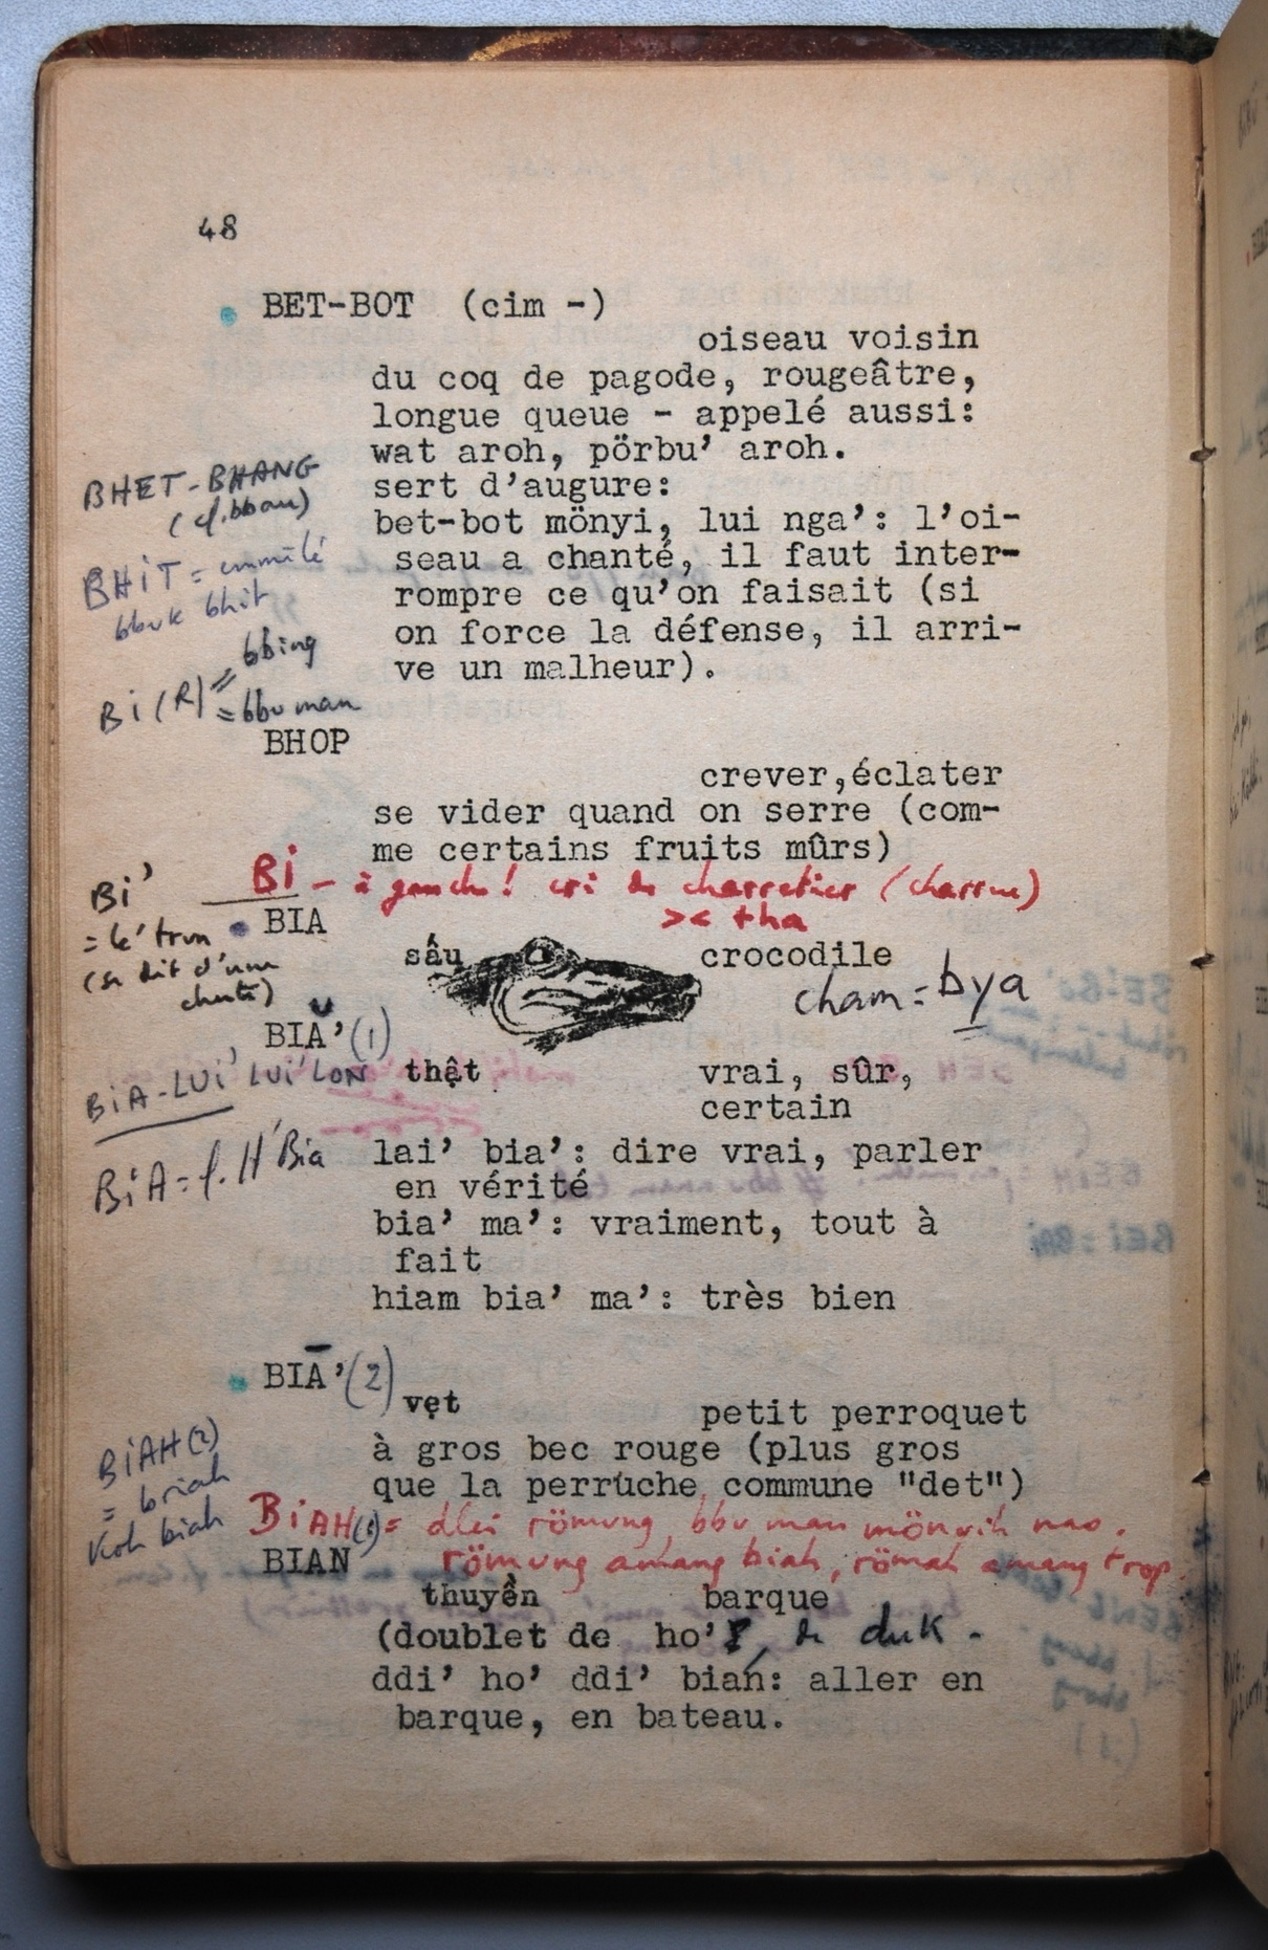 48
BET-BOT (cim -)
oiseau voisin
du coq de pagode, rougeâtre,
longue queue - appelé aussi:
wat aroh, pörbu' aroh.
sert d'augure:
bet-bot mönyi, lui nga': l'oi-
seau a chanté, il faut inter-
rompre ce qu'on faisait (si
on force la défense, il arri-
ve un malheur).
BHET-BHANG
(cf. bbau)
BHIT =
bbuk bhit
Bi (R) = bbing
= bbu man
BHOP
crever,éclater
se vider quand on serre (com-
me certains fruits mûrs)
Bi - à gauche! cri de charretier (charrue)
>< tha
Bi'
= le' trun
(se dit d'une
chute)
BIA
sấu crocodile
cham = bya
BIĂ' (1)
thật vrai, sûr,
certain
BIA-LUI' LUI' LON
BIA = f. H'Bia
lai' bia': dire vrai, parler
en vérité
bia' ma': vraiment, tout à
fait
hiam bia' ma': très bien
BIĀ' (2)
vẹt petit perroquet
à gros bec rouge (plus gros
que la perruche commune "det")
BIAH (2)
= briah
Koh biah
BIAH (1) = dlei römung, bbu man mönuih nao.
römung amang biah, römah amang trop.
BIAN
thuyền barque
(doublet de ho', de duk -
ddi' ho' ddi' bian: aller en
barque, en bateau.